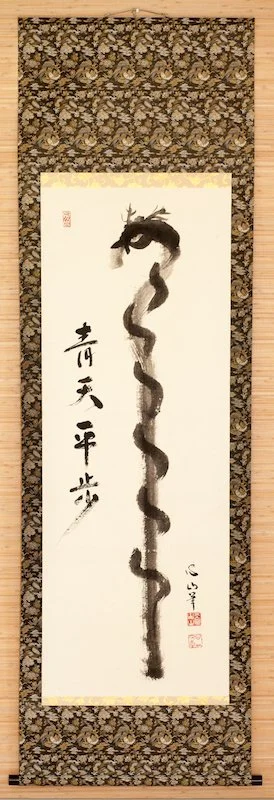 青天平歩
山筆